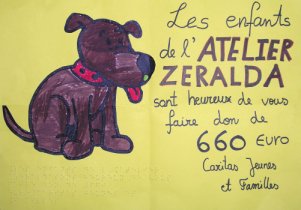 Les enfants
de l'ATELIER
ZERALDA
sont heureux de vous
faire don de
660 EURO
Caritas Jeunes
et Familles